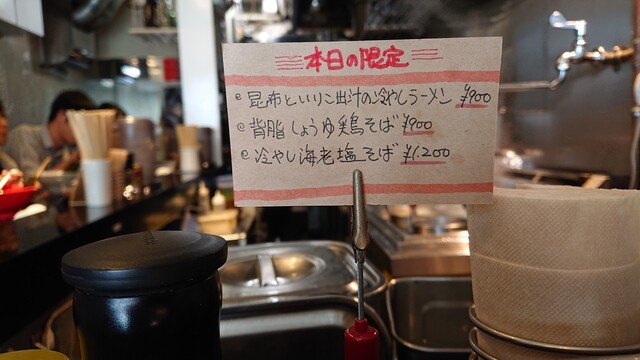 本日の限定
昆布といりこ出汁の冷やしラーメン ¥900
背脂しょうゆ鶏そば ¥900
冷やし海老塩そば ¥1.200